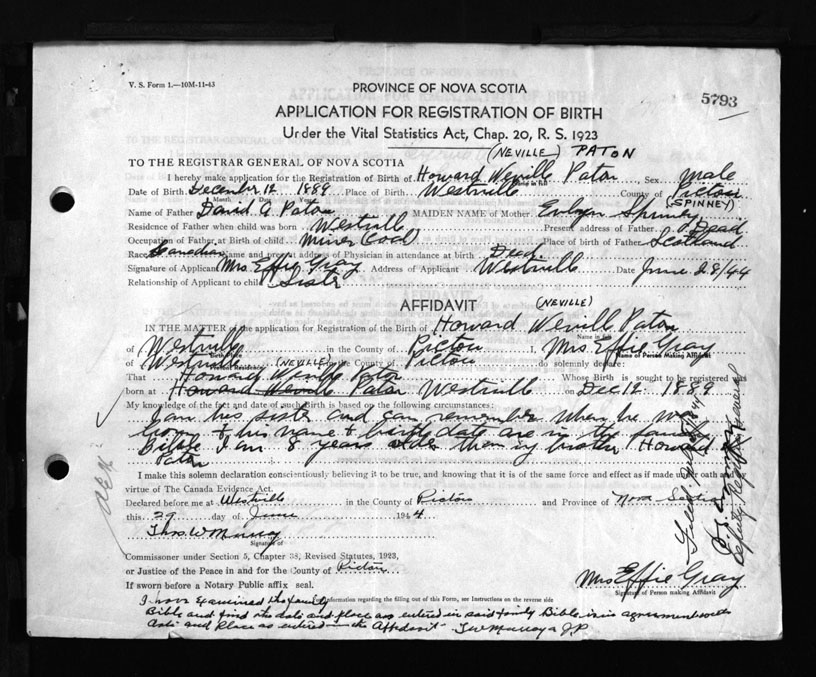 V. S. Form 1.—10M-11-43
PROVINCE OF NOVA SCOTIA
5793
APPLICATION FOR REGISTRATION OF BIRTH
Under the Vital Statistics Act, Chap. 20, R. S. 1923
(NEVILLE) PATON
TO THE REGISTRAR GENERAL OF NOVA SCOTIA
I hereby make application for the Registration of Birth of Howard Wevill Paton Sex Male
Name in full
Date of Birth December 12 1889 Place of Birth Westville County of Pictou
Month Day Year
(SPINNEY)
Name of Father David G. Paton MAIDEN NAME of Mother Evelyn Spinney
Residence of Father when child was born Westville Present address of Father Dead
Occupation of Father at Birth of child Miner (Coal) Place of birth of Father Scotland
Race Canadian Name and present address of Physician in attendance at birth Dead
Signature of Applicant Mrs. Effie Gray Address of Applicant Westville Date June 29/44
Relationship of Applicant to child Sister
AFFIDAVIT
(NEVILLE)
IN THE MATTER of the application for Registration of the Birth of Howard Wevill Paton
Name in full
of Westville in the County of Pictou I, Mrs Effie Gray
Birth Place
Name of Person Making Affidavit
of Westville in the County of Pictou do solemnly declare:
Residence
(NEVILLE)
That Howard Wevill Paton Whose Birth is sought to be registered was
born at Howard Wevill Paton Westville on Dec 12 1889
My knowledge of the fact and date of such Birth is based on the following circumstances:
I am his sister and can remember when he was
born & his name & birth date are in the family
Bible I am 8 years older than my brother Howard
Paton
I make this solemn declaration conscientiously believing it to be true, and knowing that it is of the same force and effect as if made under oath
virtue of The Canada Evidence Act.
Declared before me at Westville in the County of Pictou and Province of Nova Scotia
this 29 day of June 1944
Thos W Murray
Signature of
Commissioner under Section 5, Chapter 38, Revised Statutes, 1923,
or Justice of the Peace in and for the County of Pictou
If sworn before a Notary Public affix seal.
Mrs Effie Gray
Signature of Person making Affidavit
information regarding the filling out of this Form, see Instructions on the reverse side
I have examined the family
Bible and find the date and place as entered in said family Bible is in agreement with
date and Place as entered in the Affidavit T W Murray J P
Deputy Registrar General